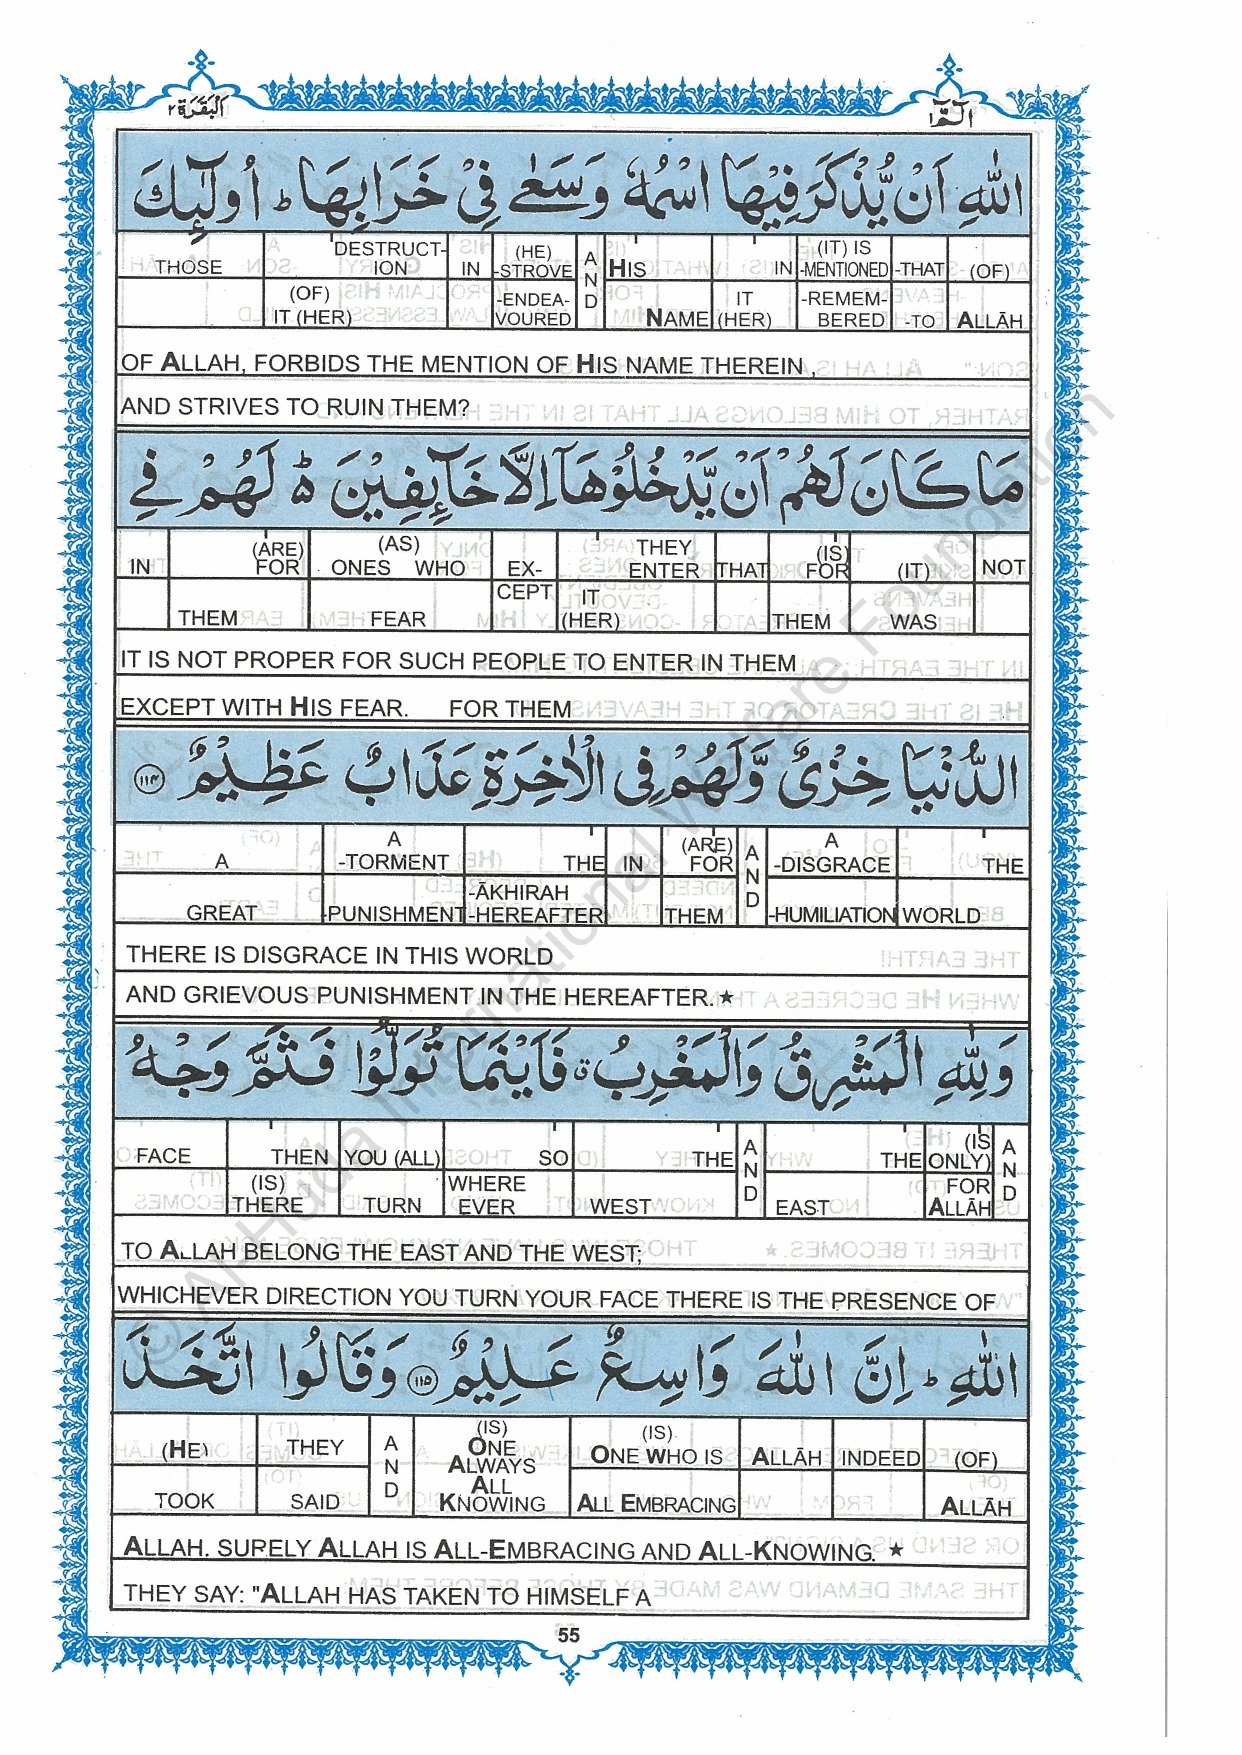 اَلْبَقَرَة ٢
الٓمّٓ ١
اللّٰهِ اَنْ يُّذْكَرَ فِيْهَا اسْمُهٗ وَسَعٰى فِيْ خَرَابِهَا ؕ اُولٰٓئِكَ
THOSE DESTRUCT-ION IN (HE) -STROVE AND HIS IN (IT) IS -MENTIONED -THAT (OF)
(OF) IT (HER) -ENDEA-VOURED NAME IT (HER) -REMEM-BERED -TO ALLĀH
OF ALLAH, FORBIDS THE MENTION OF HIS NAME THEREIN ,
AND STRIVES TO RUIN THEM?
مَا كَانَ لَهُمْ اَنْ يَّدْخُلُوْهَآ اِلَّا خَآئِفِيْنَ ؕ۬ لَهُمْ فِي
IN (ARE) FOR (AS) ONES WHO EX- THEY ENTER THAT (IS) FOR (IT) NOT
THEM FEAR CEPT IT (HER) THEM WAS
IT IS NOT PROPER FOR SUCH PEOPLE TO ENTER IN THEM
EXCEPT WITH HIS FEAR. FOR THEM
الدُّنْيَا خِزْيٌ وَّلَهُمْ فِي الْاٰخِرَةِ عَذَابٌ عَظِيْمٌ ١١٤
A A -TORMENT THE IN (ARE) FOR AND A -DISGRACE THE
GREAT -PUNISHMENT -ĀKHIRAH -HEREAFTER THEM -HUMILIATION WORLD
THERE IS DISGRACE IN THIS WORLD
AND GRIEVOUS PUNISHMENT IN THE HEREAFTER.★
وَلِلّٰهِ الْمَشْرِقُ وَالْمَغْرِبُ ۗ فَاَيْنَمَا تُوَلُّوْا فَثَمَّ وَجْهُ
FACE THEN YOU (ALL) SO THE AND THE (IS ONLY) AND
(IS) THERE TURN WHERE EVER WEST EAST FOR ALLĀH
TO ALLAH BELONG THE EAST AND THE WEST;
WHICHEVER DIRECTION YOU TURN YOUR FACE THERE IS THE PRESENCE OF
اللّٰهِ ؕ اِنَّ اللّٰهَ وَاسِعٌ عَلِيْمٌ ١١٥ وَقَالُوا اتَّخَذَ
(HE) THEY AND (IS) ONE ALWAYS (IS) ONE WHO IS ALLĀH INDEED (OF)
TOOK SAID ALL KNOWING ALL EMBRACING ALLĀH
ALLAH. SUPELY ALLAH IS ALL-EMBRACING AND ALL-KNOWING. ★
THEY SAY: "ALLAH HAS TAKEN TO HIMSELF A
55
© Al-Huda International Welfare Foundation